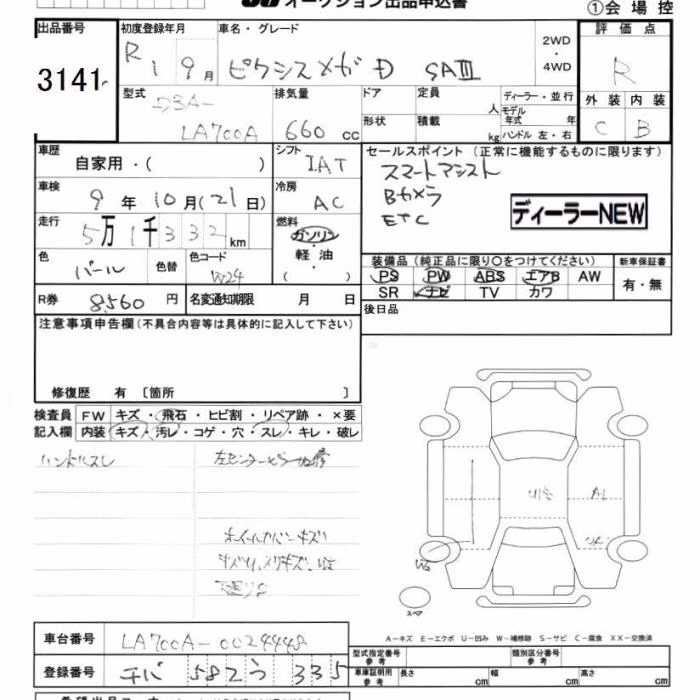 オークション出品申込書
①会場控
出品番号 初度登録年月 車名・グレード 評価点
3141 R1 9月 ピクシスメガD SAⅢ 2WD・4WD R
型式 排気量 ドア 定員 人 ディーラー・並行
モデル年式 年 外装 内装
DBA- LA700A 660 cc 形状 積載 kg ハンドル 左・右 C B
車歴 自家用・( ) シフト IAT セールスポイント (正常に機能するものに限ります)
スマートアシスト
車検 9年10月(21日) 冷房 AC Bカメラ
ETC
ディーラーNEW
走行 5万1千332km 燃料 ガソリン・軽油・( )
色 パール 色替 色コード W24
装備品(純正品に限り○をつけてください) 新車保証書
PS PW ABS エアB AW 有・無
SR ナビ TV カワ
R券 8,560円 名変通知期限 月 日
後日品
注意事項申告欄(不具合内容等は具体的に記入して下さい)
修復歴 有 〔箇所 〕
検査員 FW キズ・飛石・ヒビ割・リペア跡・×要
記入欄 内装 キズ・汚レ・コゲ・穴・スレ・キレ・破レ
ハンドルスレ
ホイールカバーキズ
スペア
A-キズ E-エクボ U-凹み W-補修跡 S-サビ C-腐食 XX-交換済
車台番号 LA700A-0024448
型式指定番号 参考 類別区分番号 参考
登録番号 チバ 582 う 335
車庫証明用 参考 長さ cm 幅 cm 高さ cm